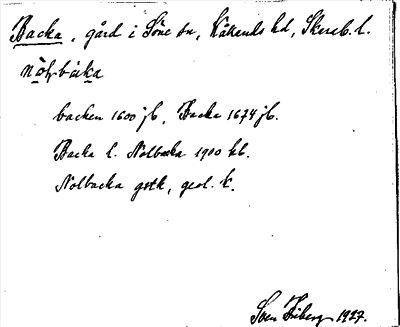 Backa, gård i Söne sn, Kållands hd, Skarab. l.
backen 1600 jb, Backa 1674 jb.
Backa l. Nolbacka 1900 kb.
Nolbacka gstk, geol. k.
Sven Friberg 1927.